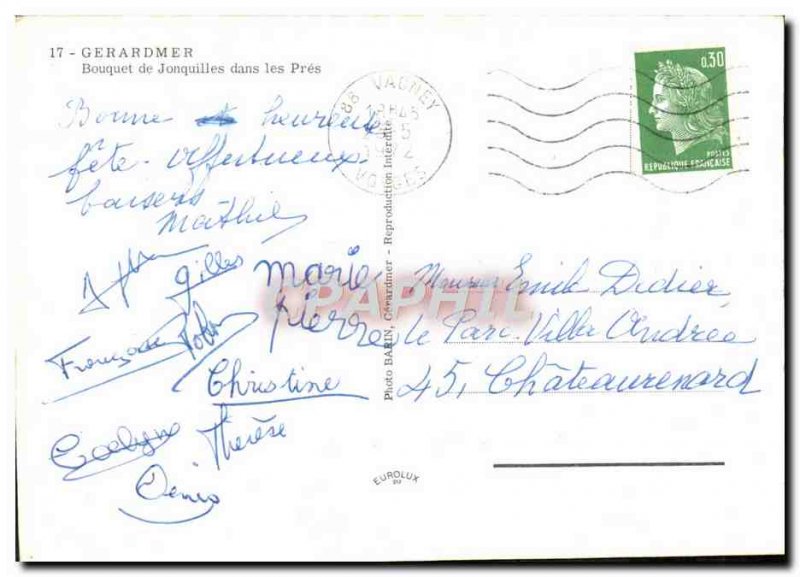 17 - GERARDMER
Bouquet de Jonquilles dans les Prés
Bonne heureuse
fête - affectueux
baisers
Gilles
Marie
Pierre
Christine
Thérèse
Denis
88 VAGNEY
18H45
VOSGES
0,30
POSTES
REPUBLIQUE FRANÇAISE
Monsieur Emile Didier
le Parc Villa Andrée
45, Châteaurenard
Photo BARIN, Gérardmer - Reproduction Interdite
CPAPHIL
EUROLUX